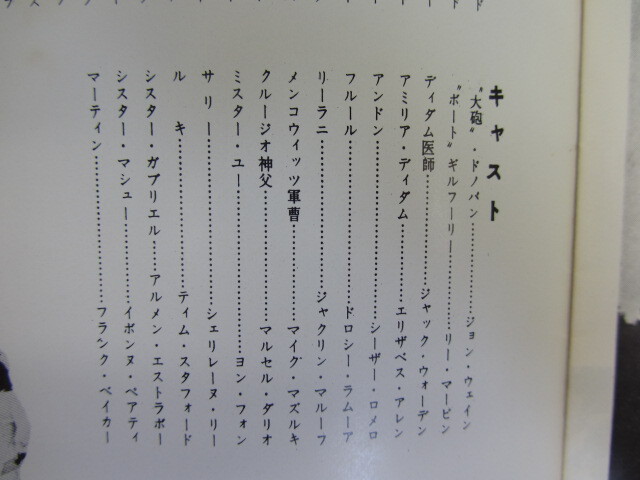 キャスト
〝大砲〟・ドノバン……………ジョン・ウェイン
〝ボート〟ギルフーリー……………リー・マービン
ディダム医師……………ジャック・ウォーデン
アミリア・ディダム……………エリザベス・アレン
アンドン……………シーザー・ロメロ
フルール……………ドロシー・ラムーア
リーラニ……………ジャクリン・マルーフ
メンコウィッツ軍曹……………マイグ・マズルキ
クルージオ神父……………マルセル・ダリオ
ミスター・ユー……………ヨン・フォン
サリー……………シェリレーヌ・リー
ルキ……………ティム・スタフォード
シスター・ガブリエル……アルメン・エストラポー
シスター・マシュー……………イボンヌ・ペアティ
マーティン……………フランク・ベイカー